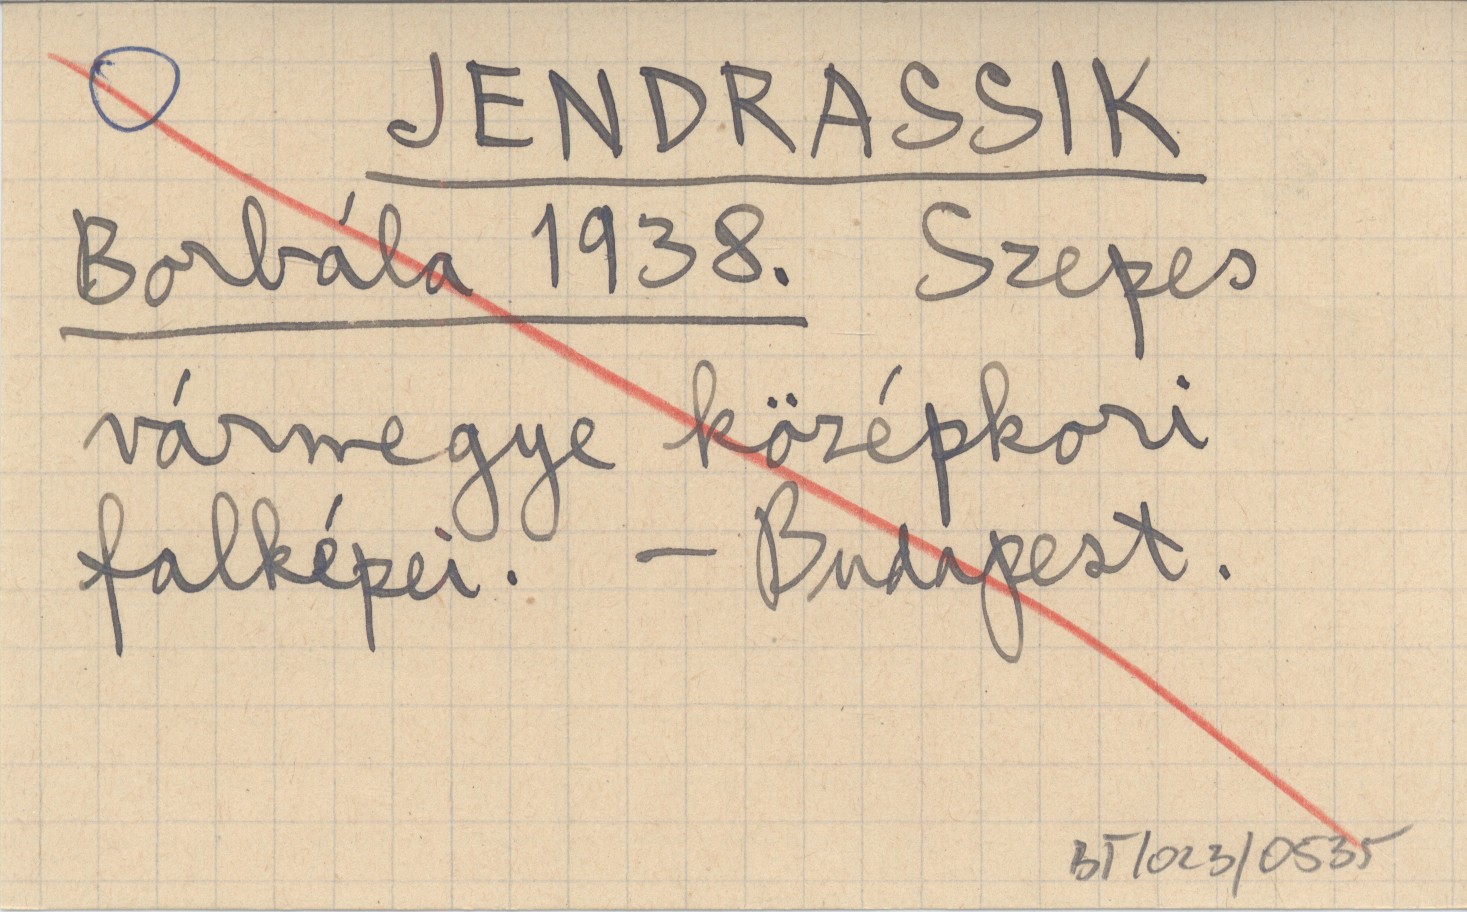 JENDRASSIK
Borbála 1938. Szepes
vármegye középkori
falképei. — Budapest.
BT/023/0535